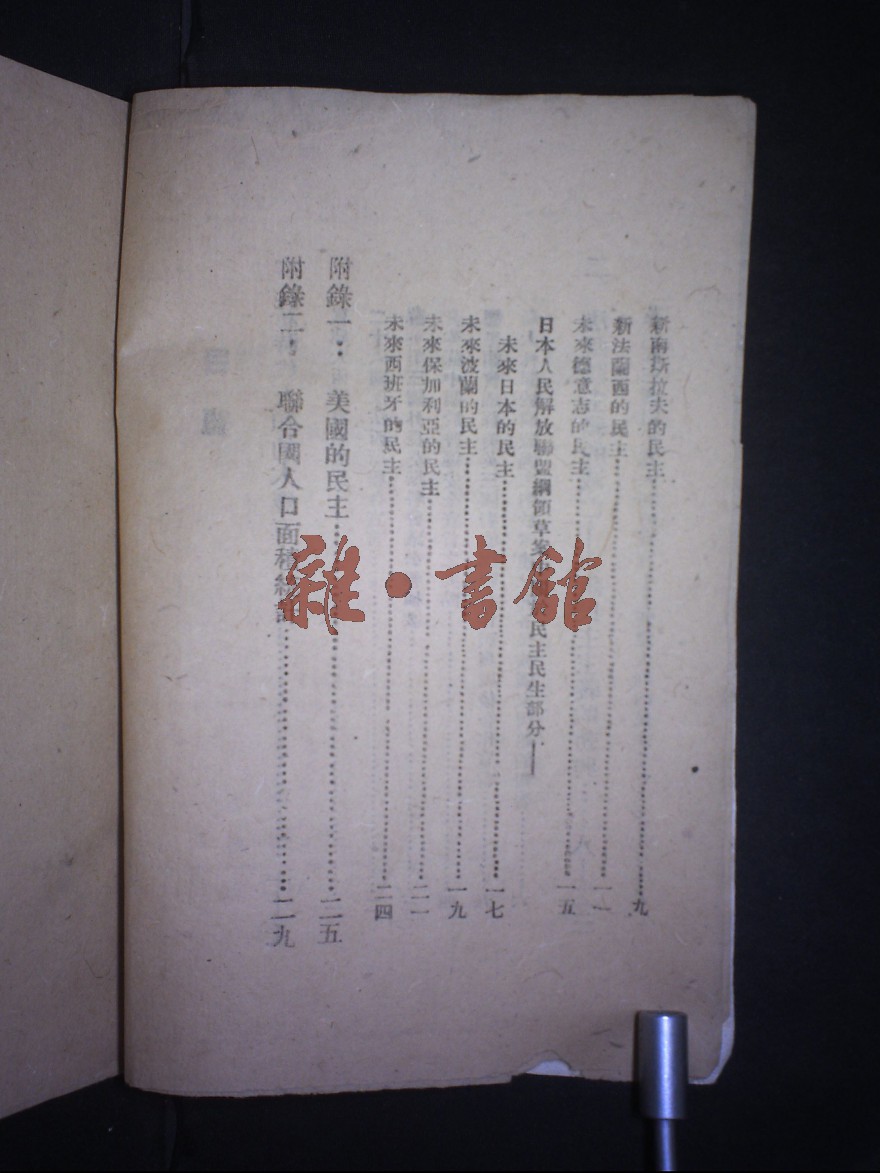 新南斯拉夫的民主……九
新法蘭西的民主……一一
未來德意志的民主……一五
日本人民解放聯盟綱領草案 民主民生部分——
未來日本的民主……一七
未來波蘭的民主……一九
未來保加利亞的民主……二一
未來西班牙的民主……二四
附錄一：美國的民主……二五
附錄二：聯合國人口面積統計……二九
雜·書館